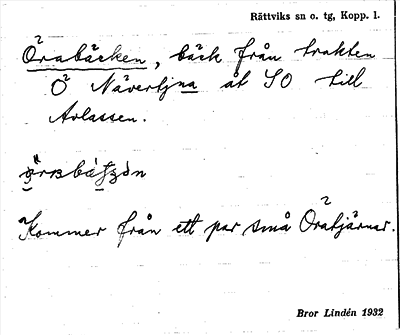 Rättviks sn o. tg, Kopp. l.
Örabäcken, bäck från trakten
O Nävertjna åt SO till
Avlassen.
Kommer från ett par små Öratjärnar.
Bror Lindén 1932